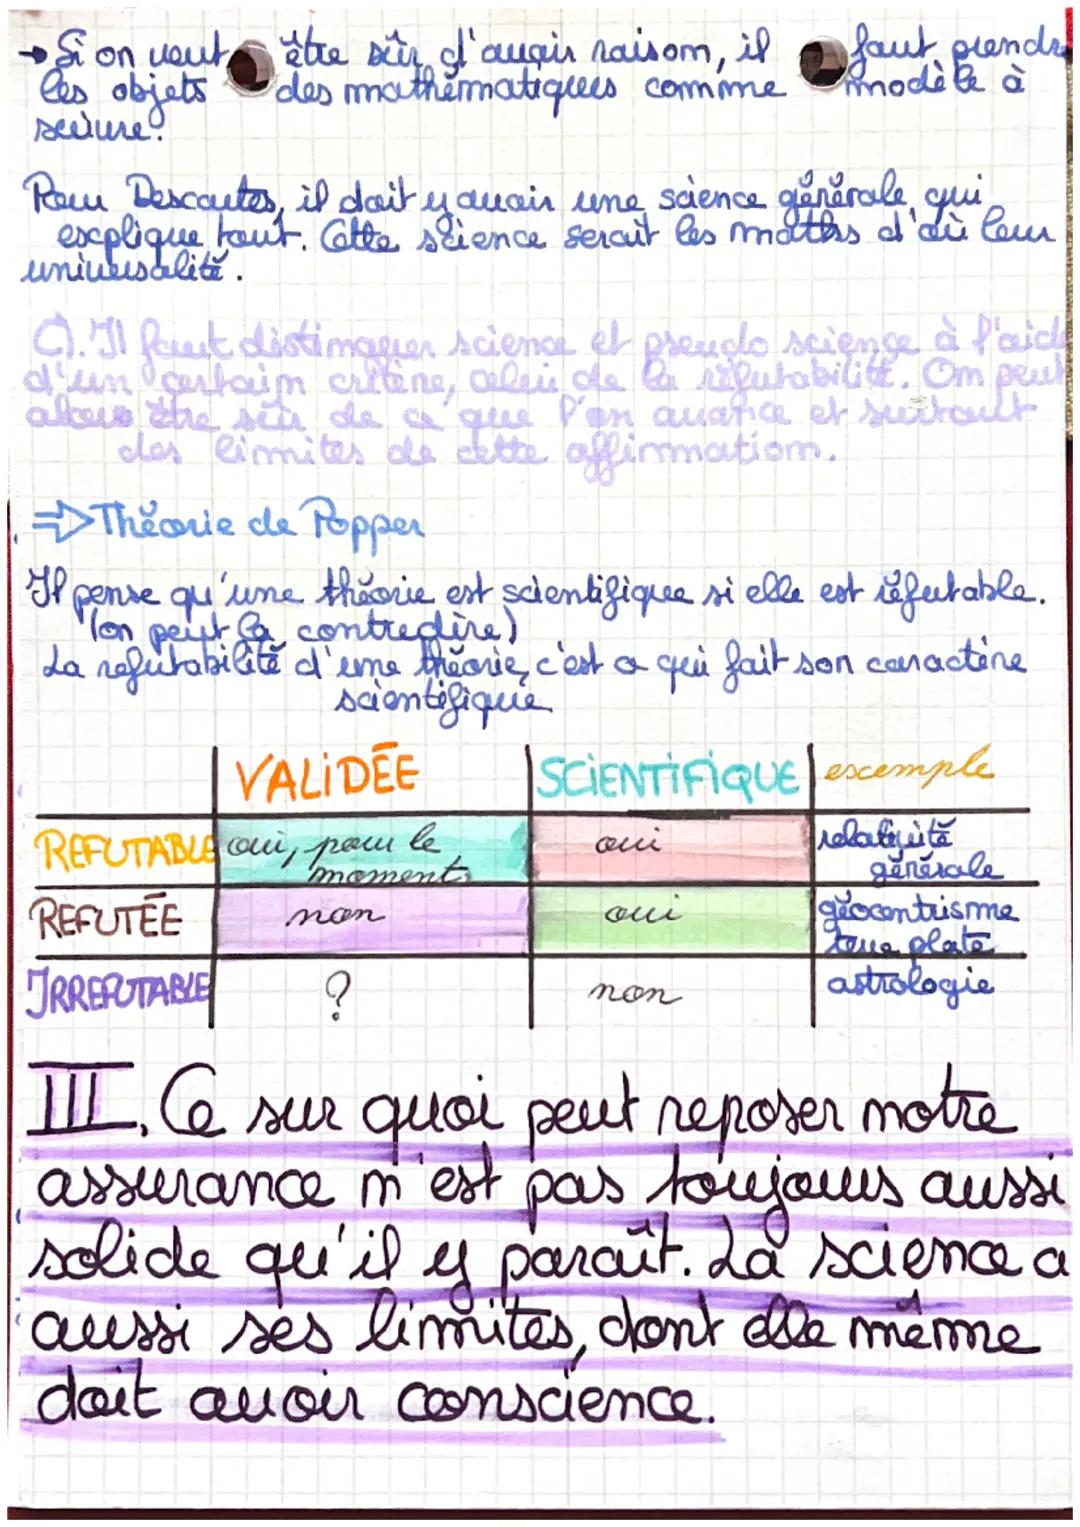 → Si on veut être sûr d'avoir raison, il faut prendre
les objets des mathématiques comme modèle à
suivre.
Pour Descartes, il doit y avoir une science générale qui
explique tout. Cette science serait les maths d'où leur
universalité.
C). Il faut distinguer science et pseudo science à l'aide
d'un certain critère, celui de la réfutabilité. On peut
alors être sûr de ce que l'on avance et surtout
des limites de cette affirmation.
⇒ Théorie de Popper
Il pense qu'une théorie est scientifique si elle est réfutable.
(on peut la contredire)
La refutabilité d'une théorie, c'est ce qui fait son caractère
scientifique
VALIDÉE SCIENTIFIQUE exemple
REFUTABLE oui, pour le moment oui relativité générale
REFUTÉE non oui géocentrisme terre plate
IRREFUTABLE ? non astrologie
III. Ce sur quoi peut reposer notre
assurance n'est pas toujours aussi
solide qu'il y paraît. La science a
aussi ses limites, dont elle même
doit avoir conscience.